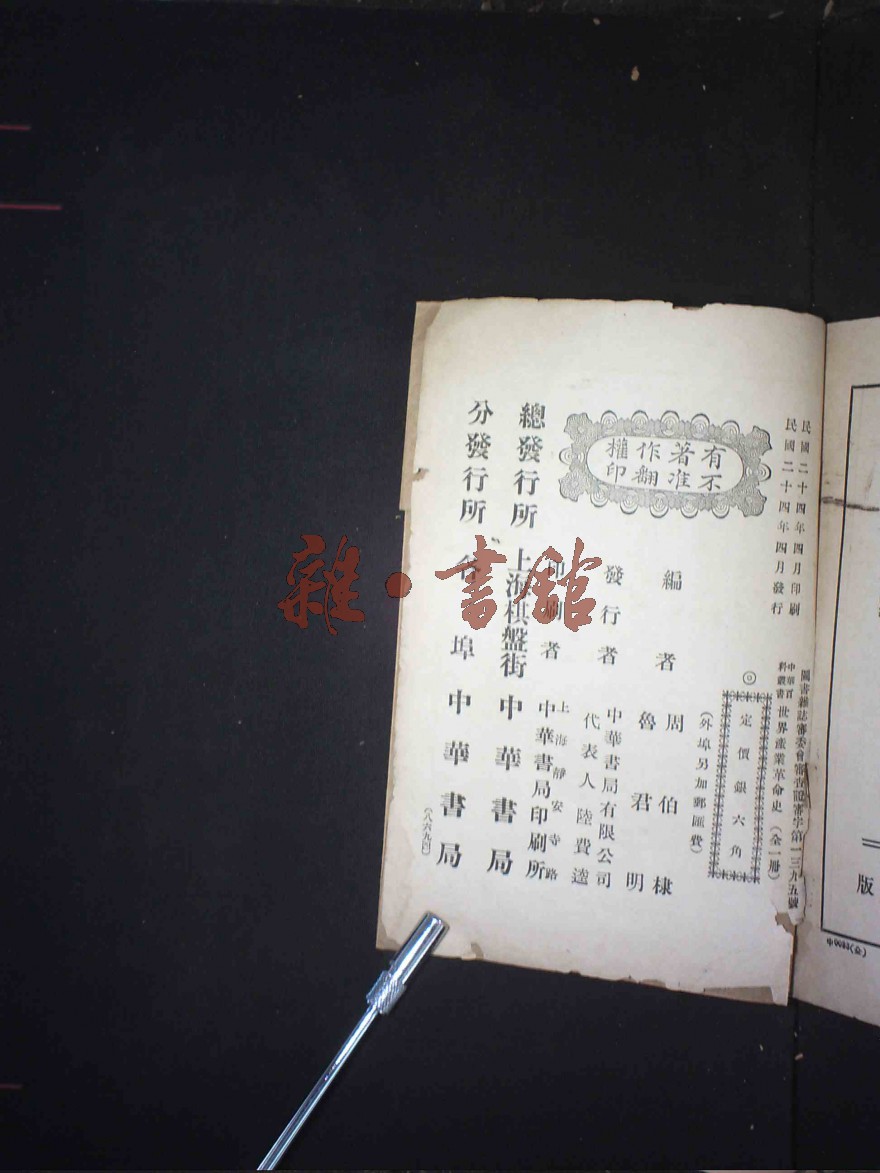 民國二十四年四月印刷
民國二十四年四月發行
圖書雜誌審委會審查證審字第一三九五號
中華百科叢書 世界產業革命史（全一冊）
◎定價銀六角
（外埠另加郵匯費）
有著作權
不准翻印
編者 周伯棣
魯君明
發行者 中華書局有限公司
代表人陸費逵
印刷者 上海靜安寺路
中華書局印刷所
總發行所 上海棋盤街 中華書局
分發行所 各埠 中華書局
（八六九四）
雜·書館
版